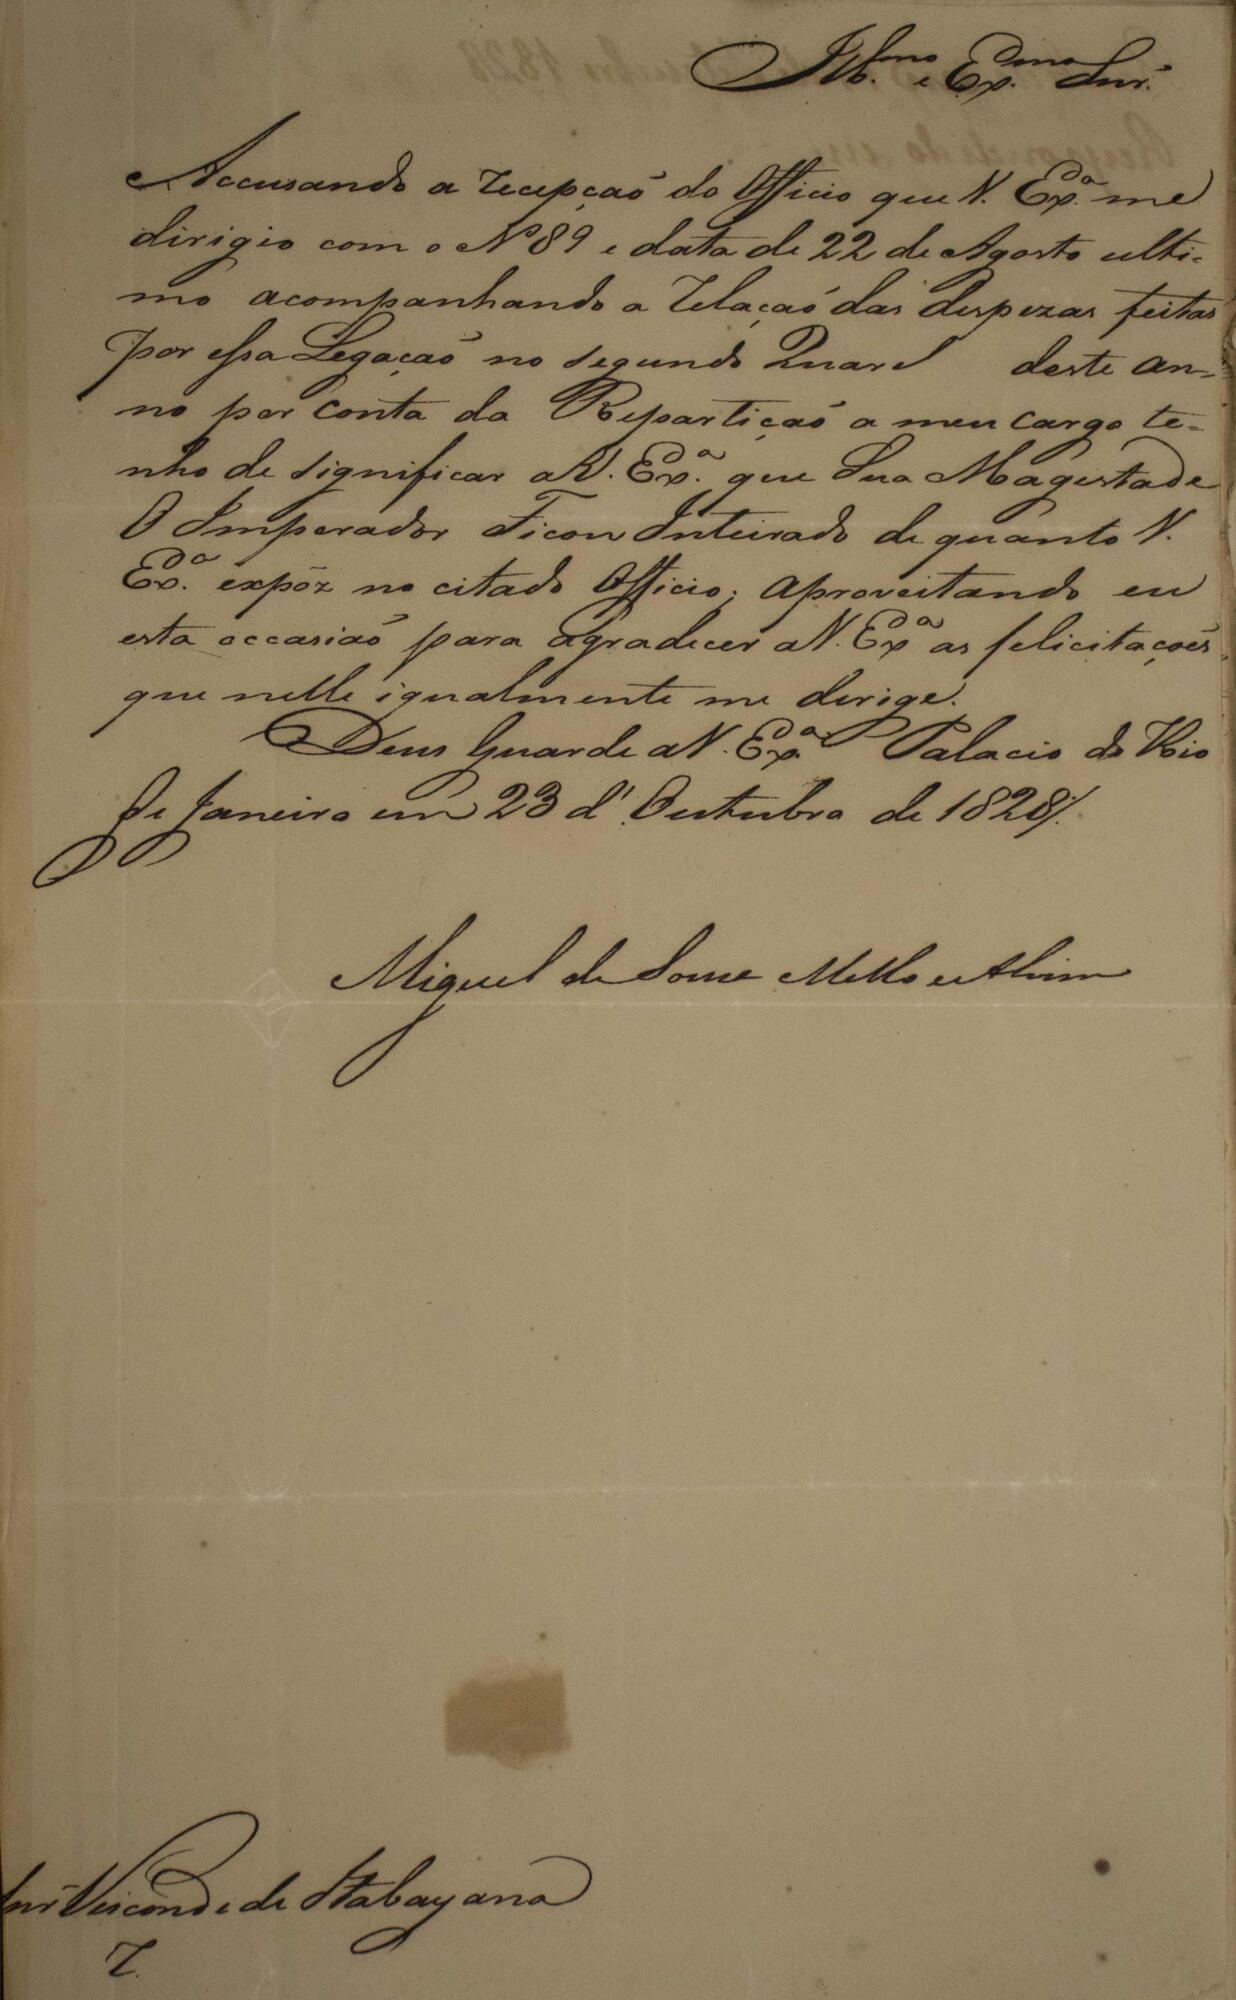 Ill.mo e Ex.mo Snr.
Accusando a recepçaõ do Officio que V. Ex.a me
dirigio com o Nº 89 e data de 22 de Agosto ulti-
mo acompanhando a relaçaõ das despezas feitas
por essa Legaçaõ no segundo Quarel deste an-
no por conta da Repartiçaõ a meu cargo te-
nho de significar a V. Ex.a que Sua Magestade
O Imperador Ficou Inteirado de quanto V.
Ex.a expôz no citado Officio; aproveitando eu
esta occasiaõ para agradecer a V. Ex.a as felicitaçoẽs
que nelle igualmente me dirige.
Deus Guarde a V. Ex.a Palacio do Rio
de Janeiro em 23 d'Outubro de 1828/.
Miguel de Souza Mello e Alvim
Snr Visconde de Itabayana